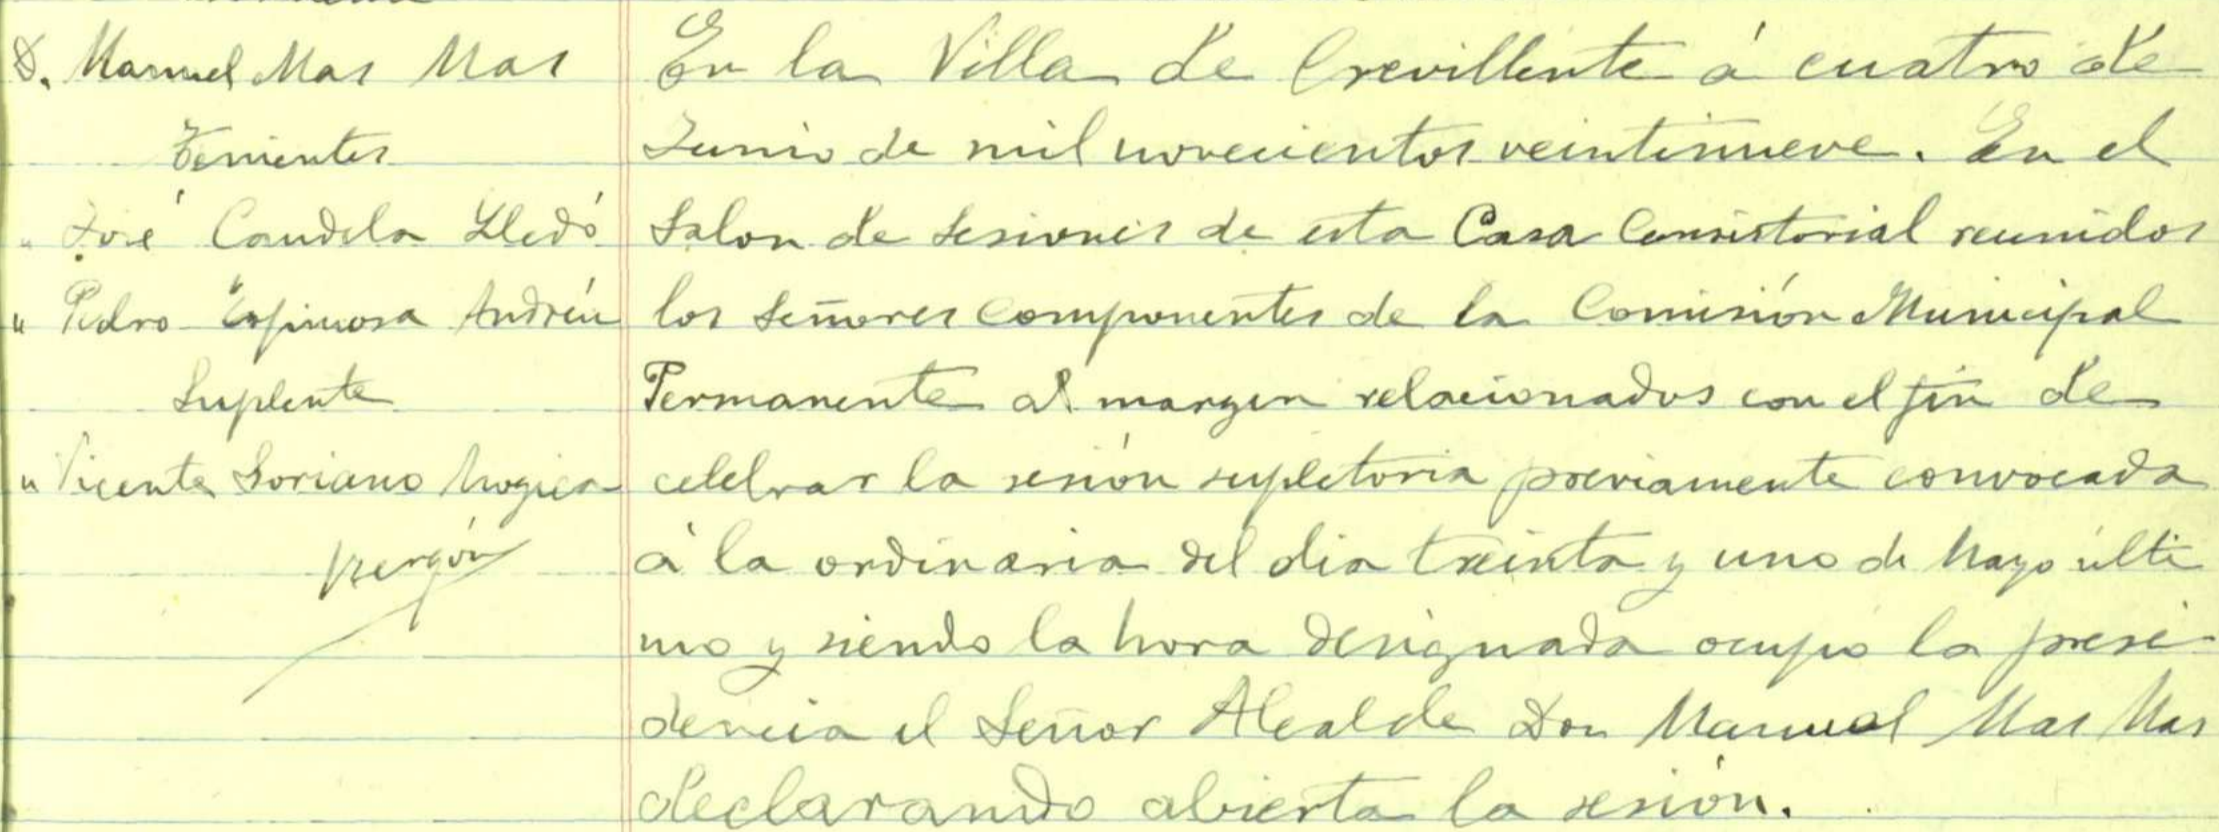 D. Manuel Mas Mas
Tenientes
" José Candela Lledó
" Pedro Espinosa Andreu
Suplente
" Vicente Soriano Mogica
En la Villa de Crevillente á cuatro de
Junio de mil novecientos veintinueve. En el
Salon de Sesiones de esta Casa Consistorial reunidos
los Señores componentes de la Comisión Municipal
Permanente al margen relacionados con el fin de
celebrar la sesión supletoria previamente convocada
á la ordinaria del dia treinta y uno de Mayo últi
mo y siendo la hora designada ocupó la presi-
dencia el Señor Alcalde Don Manuel Mas Mas
declarando abierta la sesión.